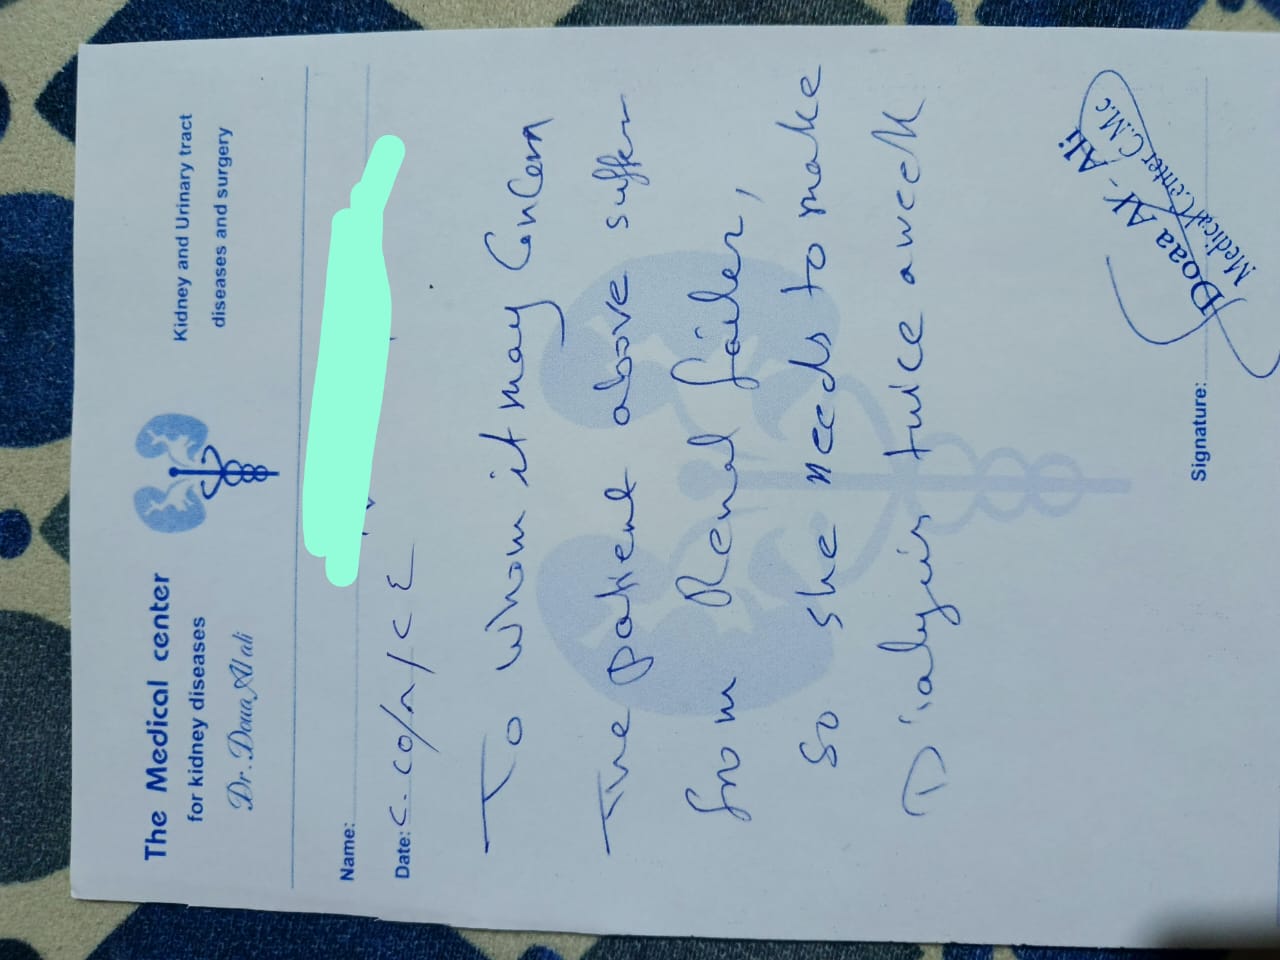 The Medical center
for kidney diseases
Dr. Doaa Al ali
Kidney and Urinary tract
diseases and surgery
Name:
Date: ٢٠٢٥/٨/٢٤
To whom it may Concern
The patient above suffer
from Renal failer,
So she needs to make
Dialysis twice a week
Signature:
Doaa Al - Ali
Medical Center C.M.c